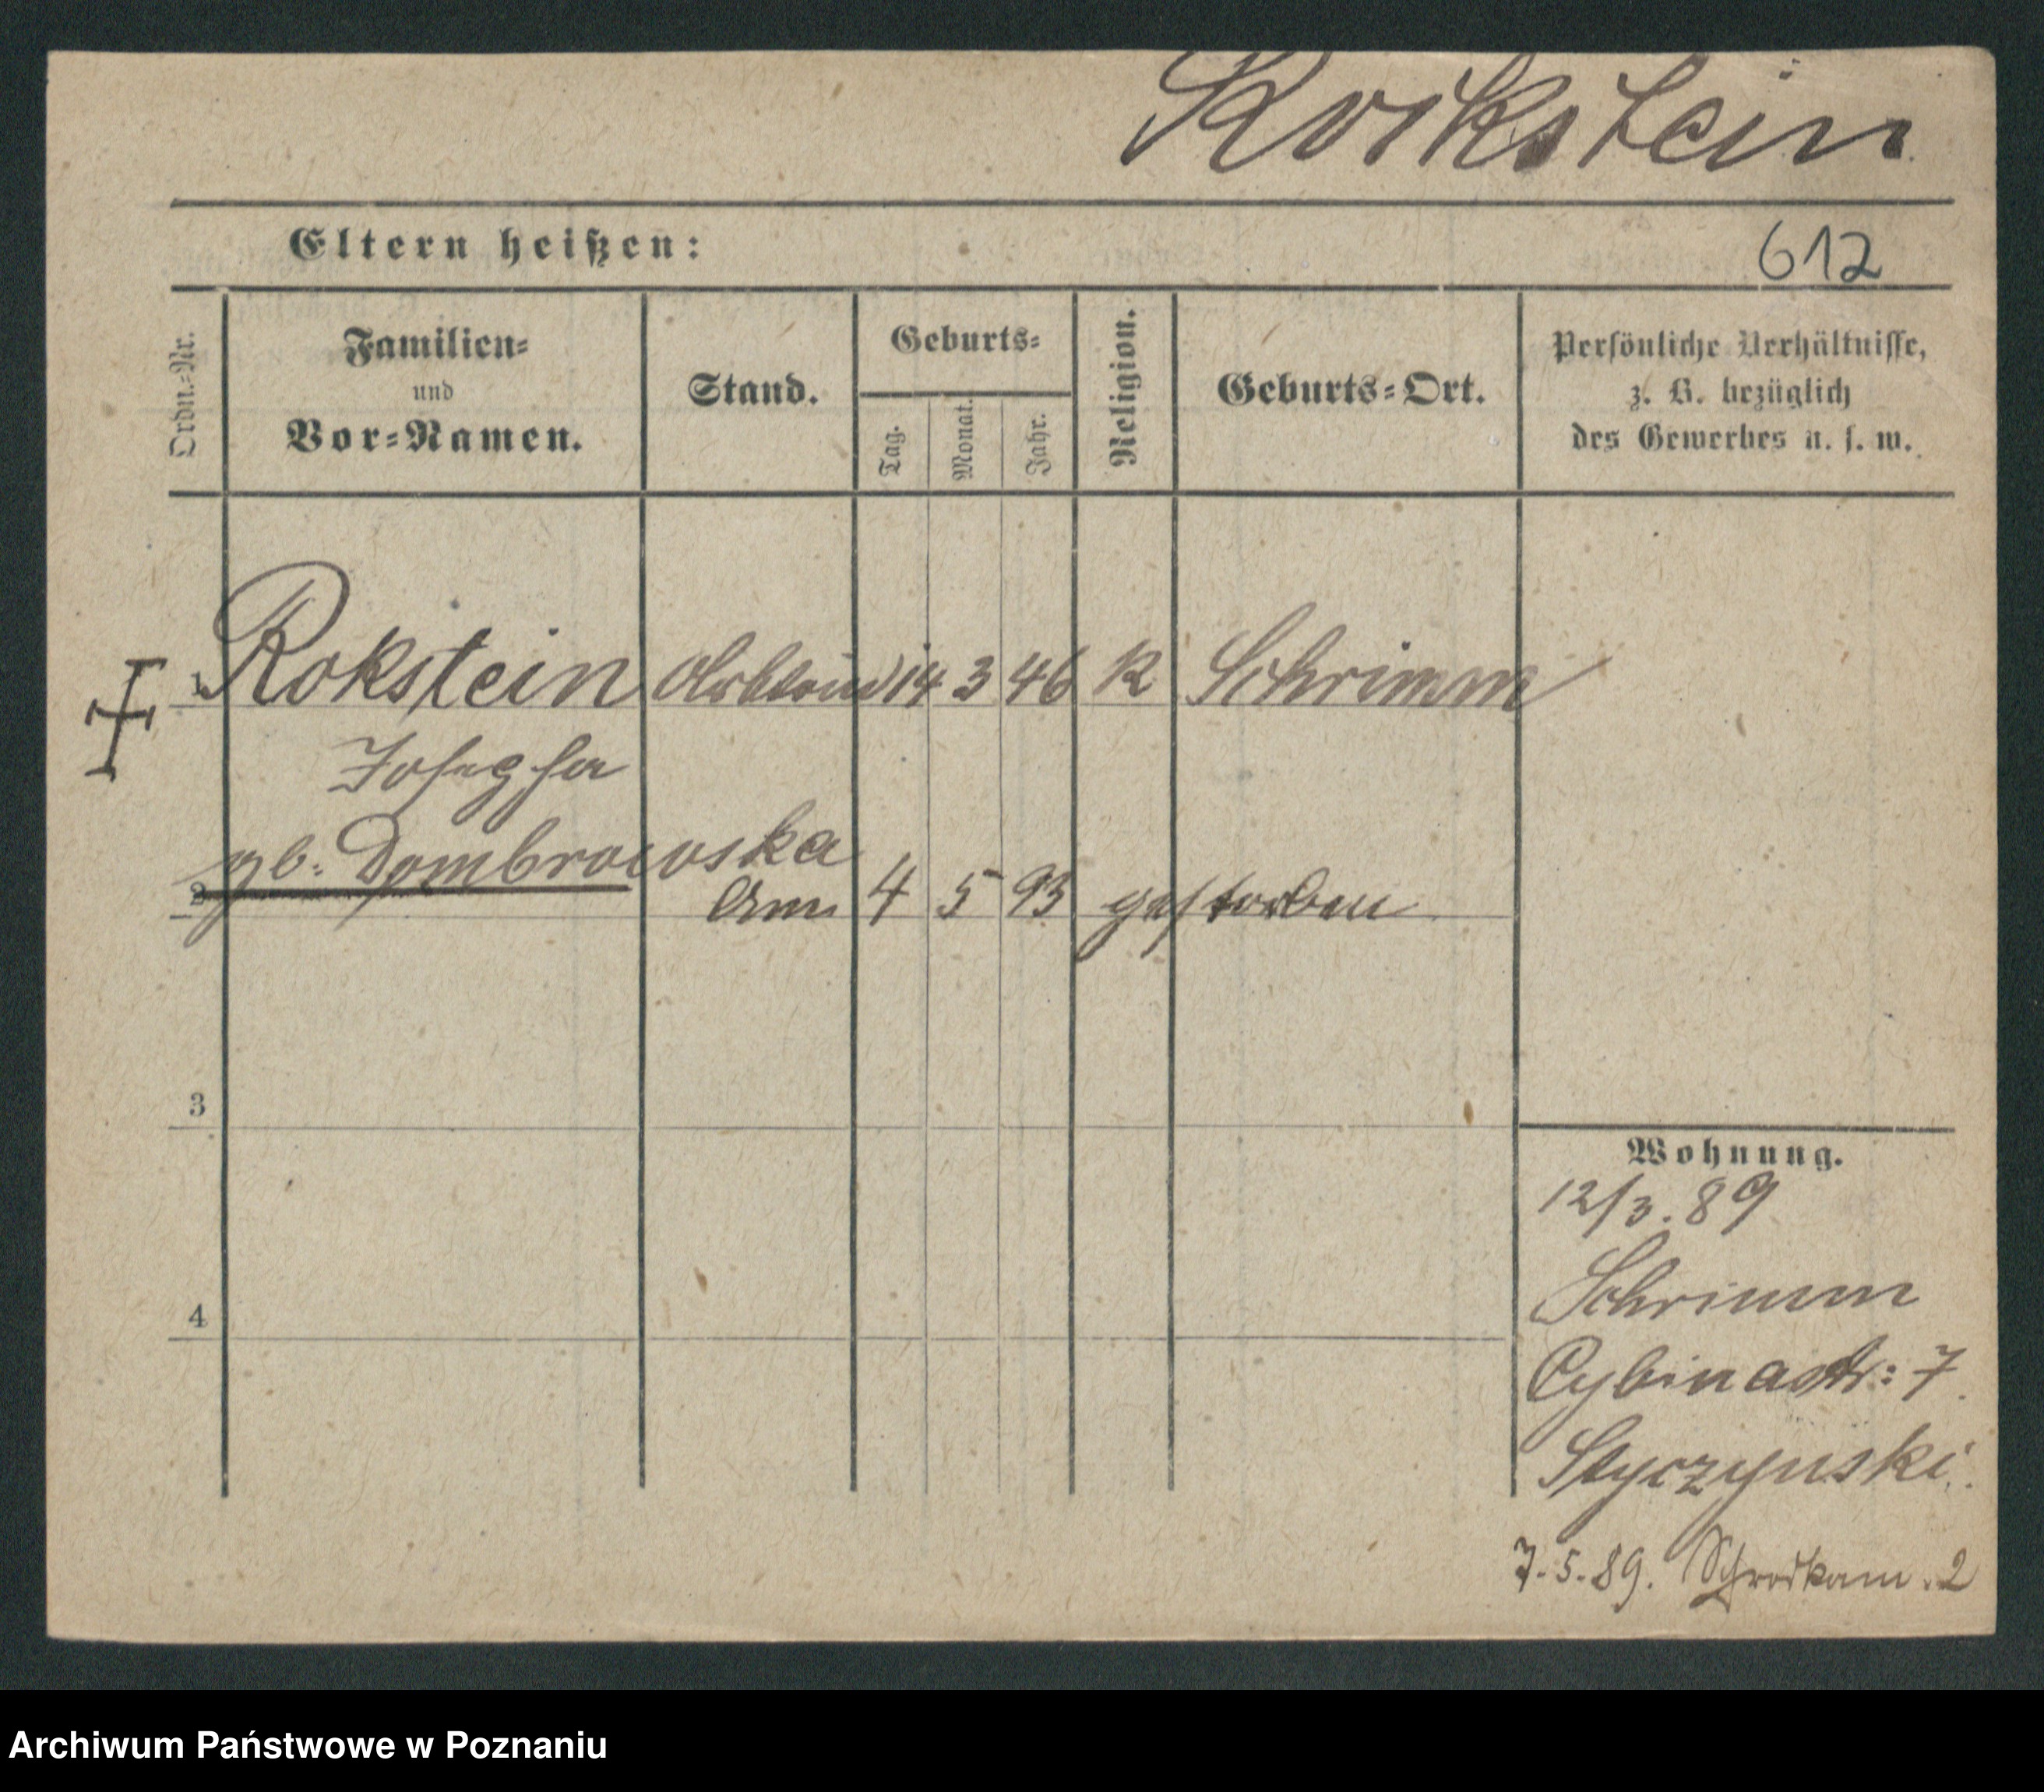 Rokstein
Eltern heißen:
612
Ordn.=Nr.
Familien=
und
Vor=Namen.
Stand.
Geburts=
Tag.
Monat.
Jahr.
Religion.
Geburts=Ort.
Persönliche Verhältnisse,
z. B. bezüglich
des Gewerbes u. s. w.
1 Rokstein 14 3 46 K Schrimm
Josepha
gb. Dombrowska
2 Am 4 5 93 gestorben
3
4
Wohnung.
12/3. 89
Schrimm
Cybinastr: 7
Styczynski.
7.5.89. 2
Archiwum Państwowe w Poznaniu